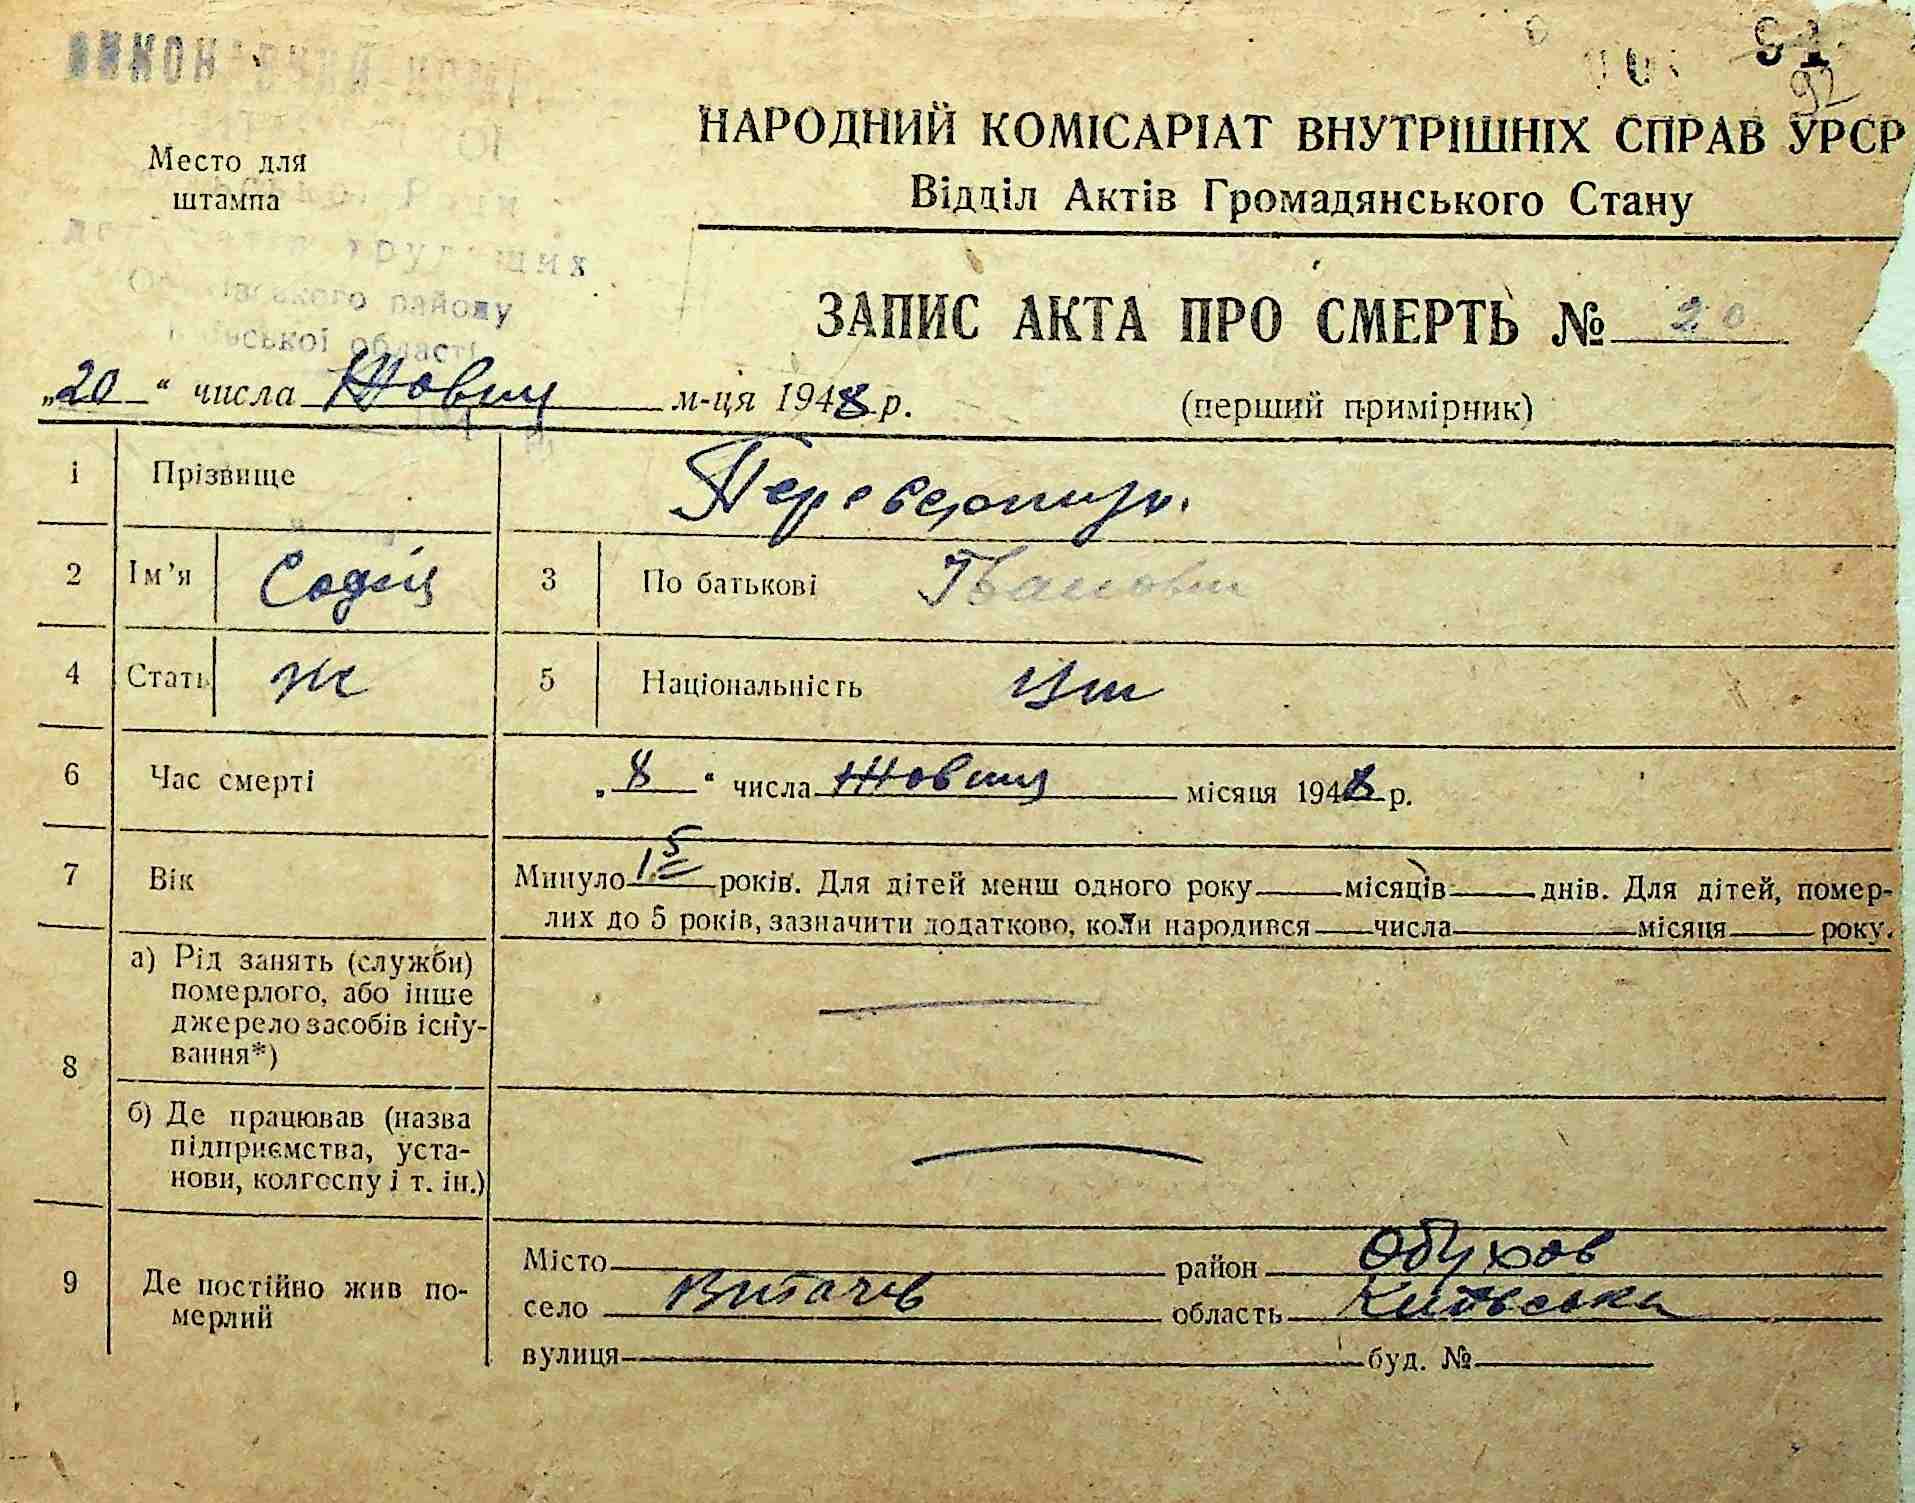 91
92
НАРОДНИЙ КОМІСАРІАТ ВНУТРІШНІХ СПРАВ УРСР
Відділ Актів Громадянського Стану
Место для
штампа
трудящих
району
області
ЗАПИС АКТА ПРО СМЕРТЬ № 20
„20“ числа Жовтня м-ця 1948 р. (перший примірник)
1 Прізвище
2 Ім’я Софія 3 По батькові Іванівна
4 Стать ж 5 Національність Укр
6 Час смерті „8“ числа Жовтня місяця 1948 р.
7 Вік Минуло 15 років. Для дітей менш одного року — місяців — днів. Для дітей, помер-
лих до 5 років, зазначити додатково, коли народився — числа — місяця — року.
8 а) Рід занять (служби)
померлого, або інше
джерело засобів існу-
вання*)
б) Де працював (назва
підприємства, уста-
нови, колгоспу і т. ін.)
9 Де постійно жив по-
мерлий
Місто район Обухов
село Витачів область Київська
вулиця буд. №